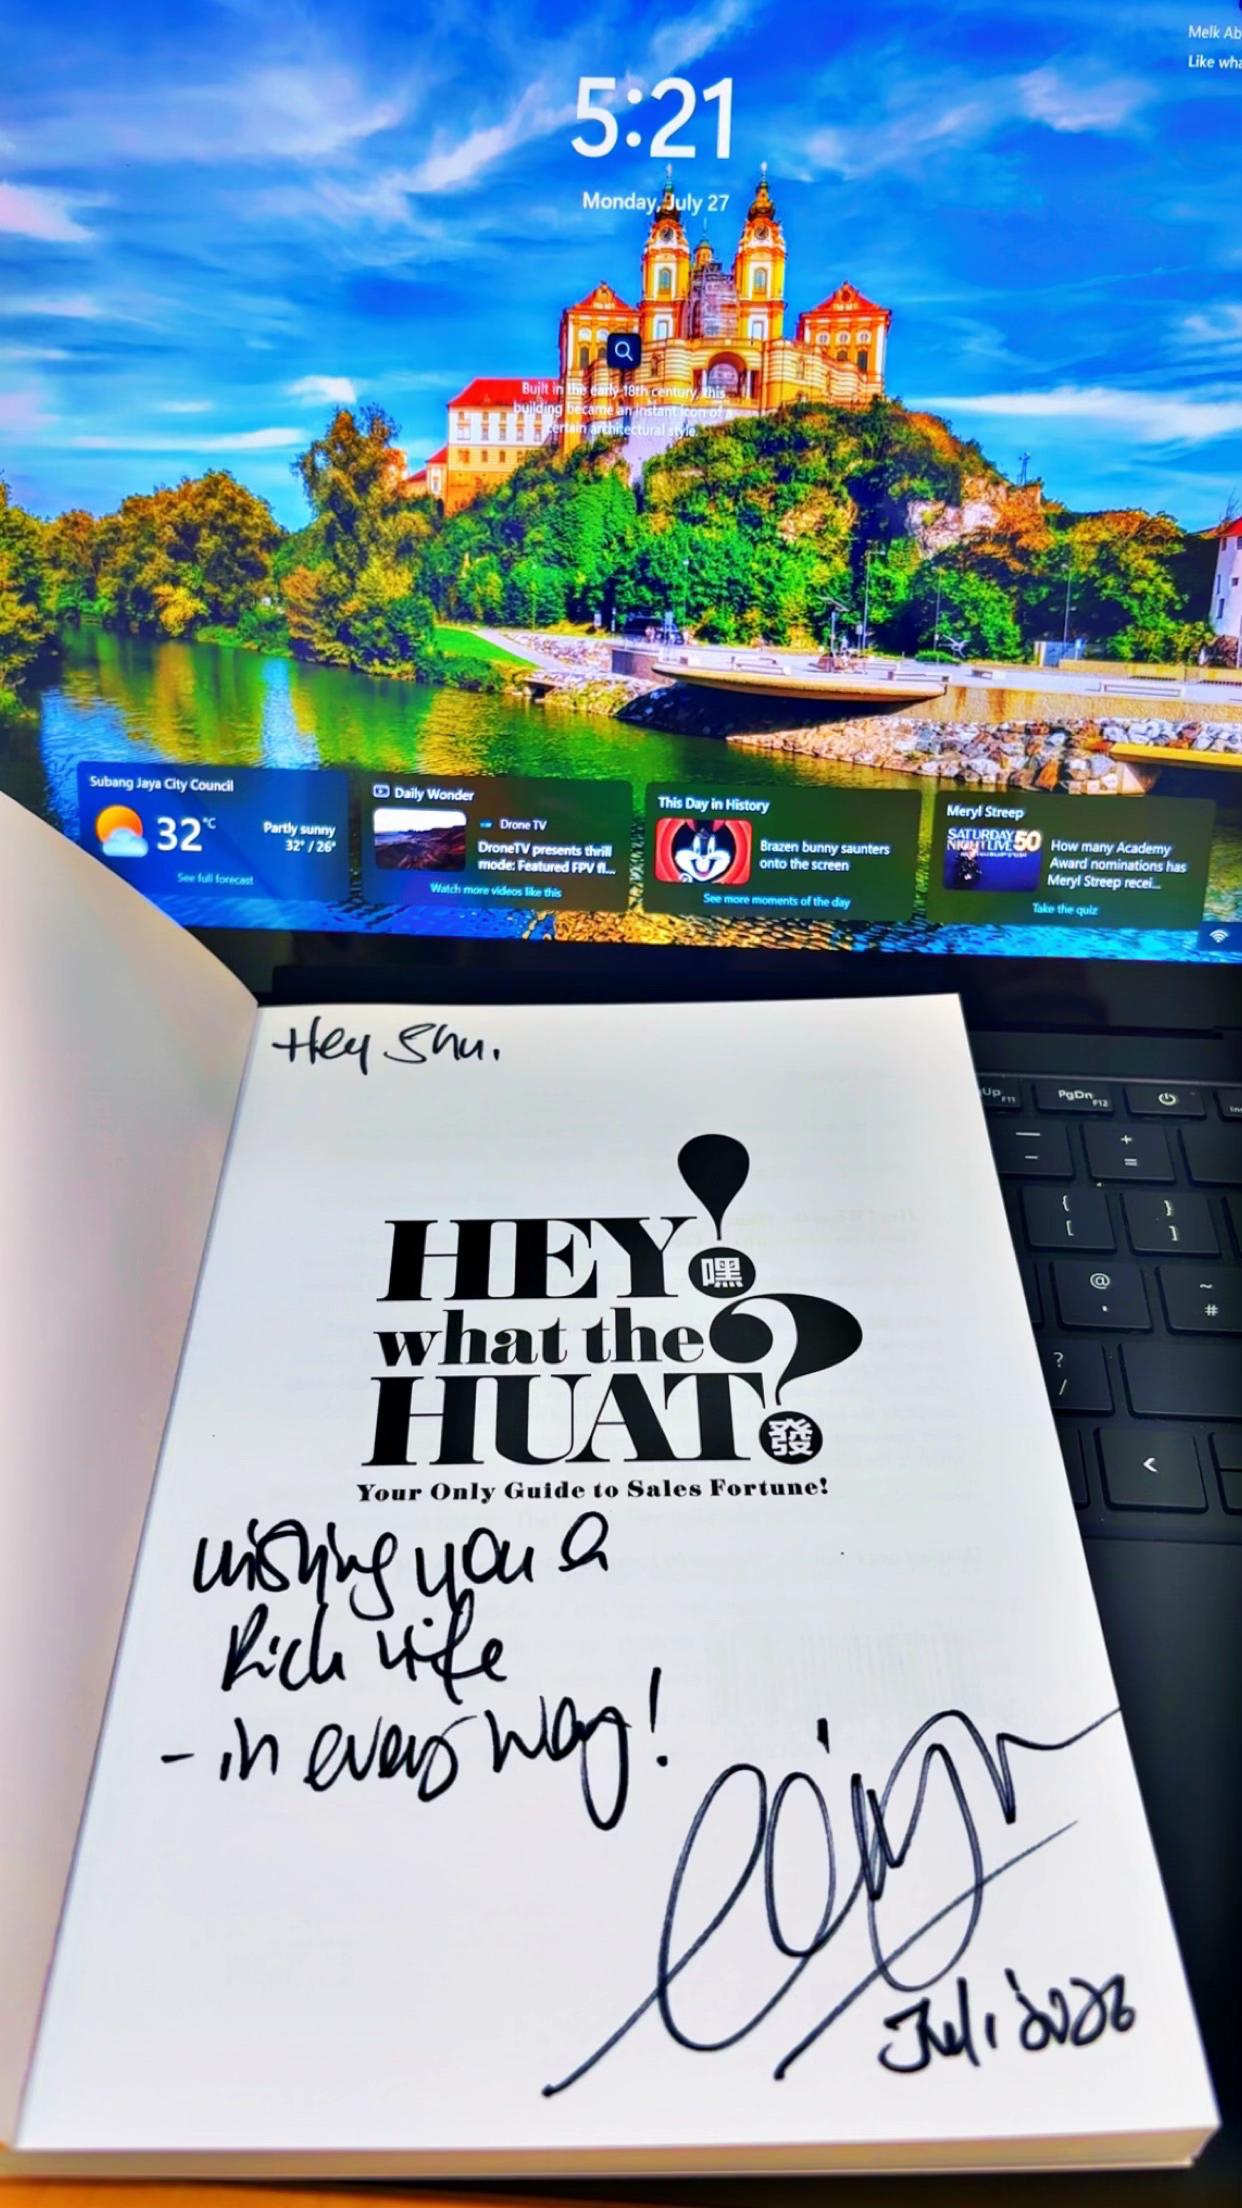 Melk Ab
Like wha
5:21
Monday, July 27
Built in the early 18th century, this
building became an instant icon of a
certain architectural style.
Subang Jaya City Council
32°C
Partly sunny
32° / 26°
See full forecast
Daily Wonder
Drone TV
DroneTV presents thrill
mode: Featured FPV fl...
Watch more videos like this
This Day in History
Brazen bunny saunters
onto the screen
See more moments of the day
Meryl Streep
SATURDAY
NIGHT LIVE 50
How many Academy
Award nominations has
Meryl Streep recei...
Take the quiz
Hey Shu.
HEY!
嘿
what the
HUAT?
發
Your Only Guide to Sales Fortune!
wishing you a
Rich life
- in every way!
Juli 2026
Up F11
PgDn F12
- + =
{ [ } ]
@ ' ~ #
? /
<